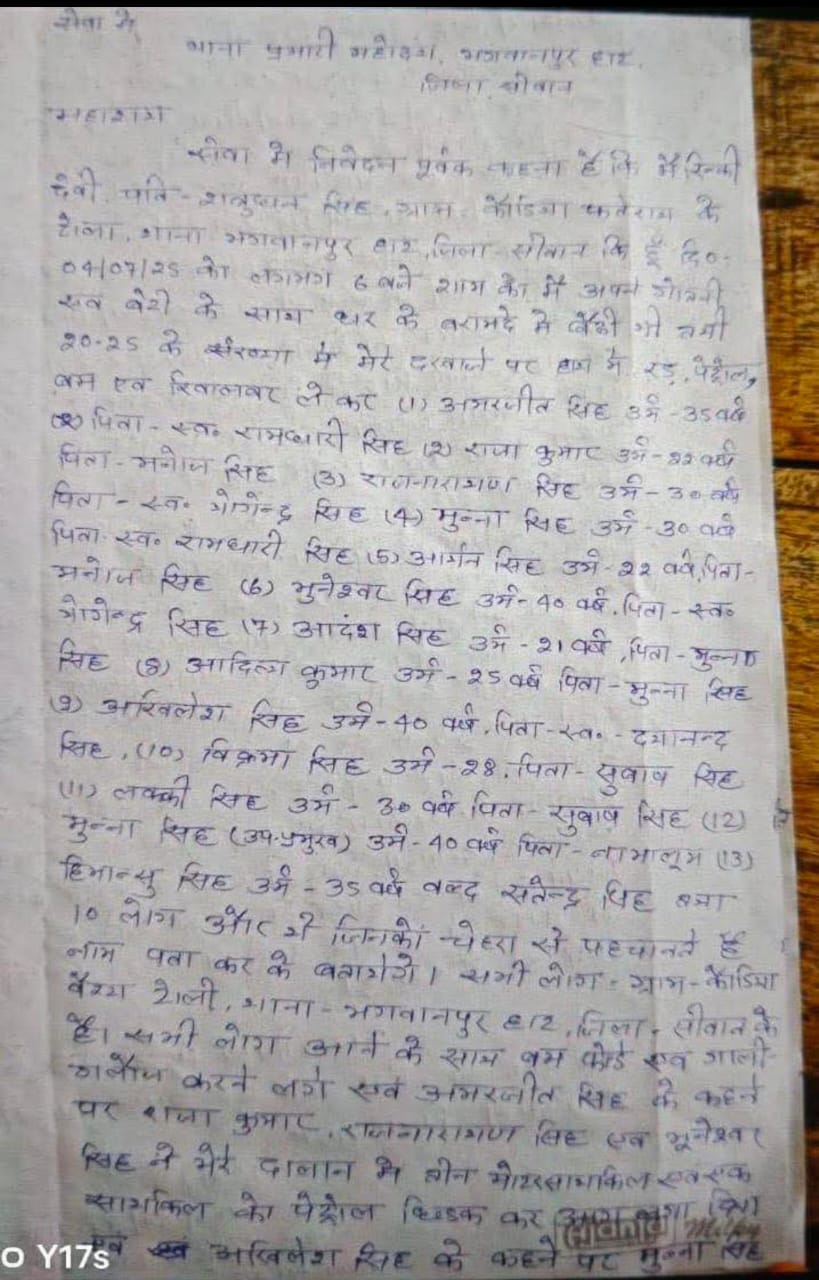 सेवा में
थाना प्रभारी महोदय, भगवानपुर हाट,
जिला सीवान
महाशय
सेवा में निवेदन पूर्वक कहना है कि मैं रिन्की
देवी पति - शत्रुधन सिंह, ग्राम - कौडिया फतेराम के
टोला, थाना भगवानपुर हाट, जिला - सीवान कि हूँ दि०-
04/07/25 को लगभग 6 बजे शाम को मैं अपने गोतनी
एवं बेटी के साथ घर के बरामदे मे बैठी थी तभी
20-25 के संख्या मे मेरे दरवाजे पर हाथ मे रड, पेट्रोल,
बम एवं रिवाल्वर ले कर (1) अमरजीत सिंह उम्र - 35 वर्ष
पिता - स्व० रामाधारी सिंह (2) राजा कुमार उम्र - 22 वर्ष
पिता - मनोज सिंह (3) राजनारायण सिंह उम्र - 30 वर्ष
पिता - स्व० योगेन्द्र सिंह (4) मुन्ना सिंह उम्र - 30 वर्ष
पिता - स्व० रामधारी सिंह (5) आर्यन सिंह उम्र - 22 वर्ष, पिता -
मनोज सिंह (6) भुनेश्वर सिंह उम्र - 40 वर्ष, पिता - स्व०
योगेन्द्र सिंह (7) आदंश सिंह उम्र - 21 वर्ष, पिता - मुन्ना
सिंह (8) आदित्य कुमार उम्र - 25 वर्ष पिता - मुन्ना सिंह
(9) अखिलेश सिंह उम्र - 40 वर्ष, पिता - स्व० - दयानन्द
सिंह, (10) विक्रमा सिंह उम्र - 28, पिता - सुबाष सिंह
(11) लक्की सिंह उम्र - 30 वर्ष पिता - सुबाष सिंह (12)
मुन्ना सिंह (उप-प्रमुख) उम्र - 40 वर्ष पिता - नामालूम (13)
हिमान्सु सिंह उम्र - 35 वर्ष वल्द सतेन्द्र सिंह तथा
10 लोग और थे जिनको चेहरा से पहचानते है
नाम पता कर के बतायेगे। सभी लोग - ग्राम - कौडिया
वैश्य टोली, थाना - भगवानपुर हाट, जिला - सीवान के
है। सभी लोग आने के साथ बम फोडे एवं गाली
गलौज करने लगे एवं अमरजीत सिंह के कहने
पर राजा कुमार, राजनारायण सिंह एवं भूनेश्वर
सिंह ने मेरे दालान मे तीन मोटरसायकिल एवं एक
सायकिल को पेट्रोल छिडक कर आग लगा दिया
एवं अखिलेश सिंह के कहने पर मुन्ना सिंह
o Y17s